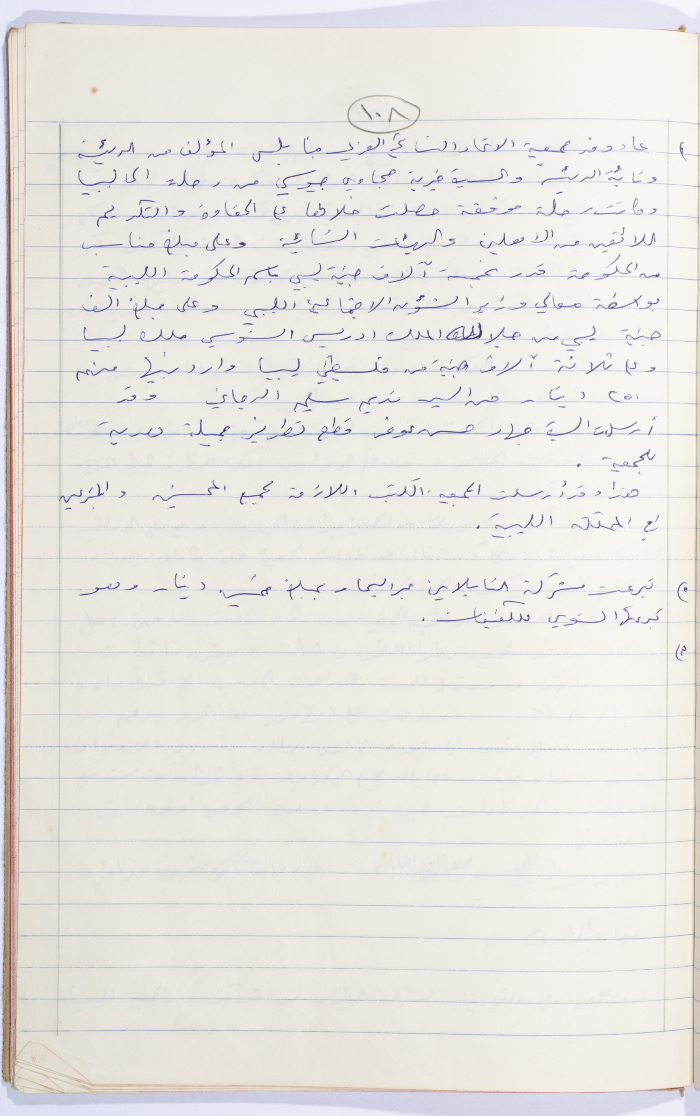 ١٠٨
٤ عاد وفد جمعية الاتحاد النسائي العربي بنابلس المؤلف من الرئيسة
ونائبة الرئيسة والسيدة خيرية حجاوي جيوسي من رحلته الى ليبيا
وكانت رحلة موفقة حصلت خلالها على الحفاوة والتكريم
اللائقين من الاهلين والهيئات النسائية وعلى مبلغ مناسب
من الحكومة قدر بخمسة آلاف جنيه ليبي باسم الحكومة الليبية
بواسطة معالي وزير الشؤون الاجتماعية الليبي وعلى مبلغ الف
جنيه ليبي من جلالة الملك ادريس السنوسي ملك ليبيا
وعلى ثلاثة آلاف جنيه من فلسطينيي ليبيا واردنييها منهم
٢٥٠ دينار من السيد نديم سليم وقد
أرسلت السيدة جهاد حسن عوض قطع تطريز جميلة هدية
للجمعية .
هذا وقد أرسلت الجمعية الكتب اللازمة لجميع المحسنين والمتبرعين
في المملكة الليبية .
٥ تبرعت شركة التابلاين عبر البحار بمبلغ خمسين دينار وهو
تبرعها السنوي للكفيفات .
٦